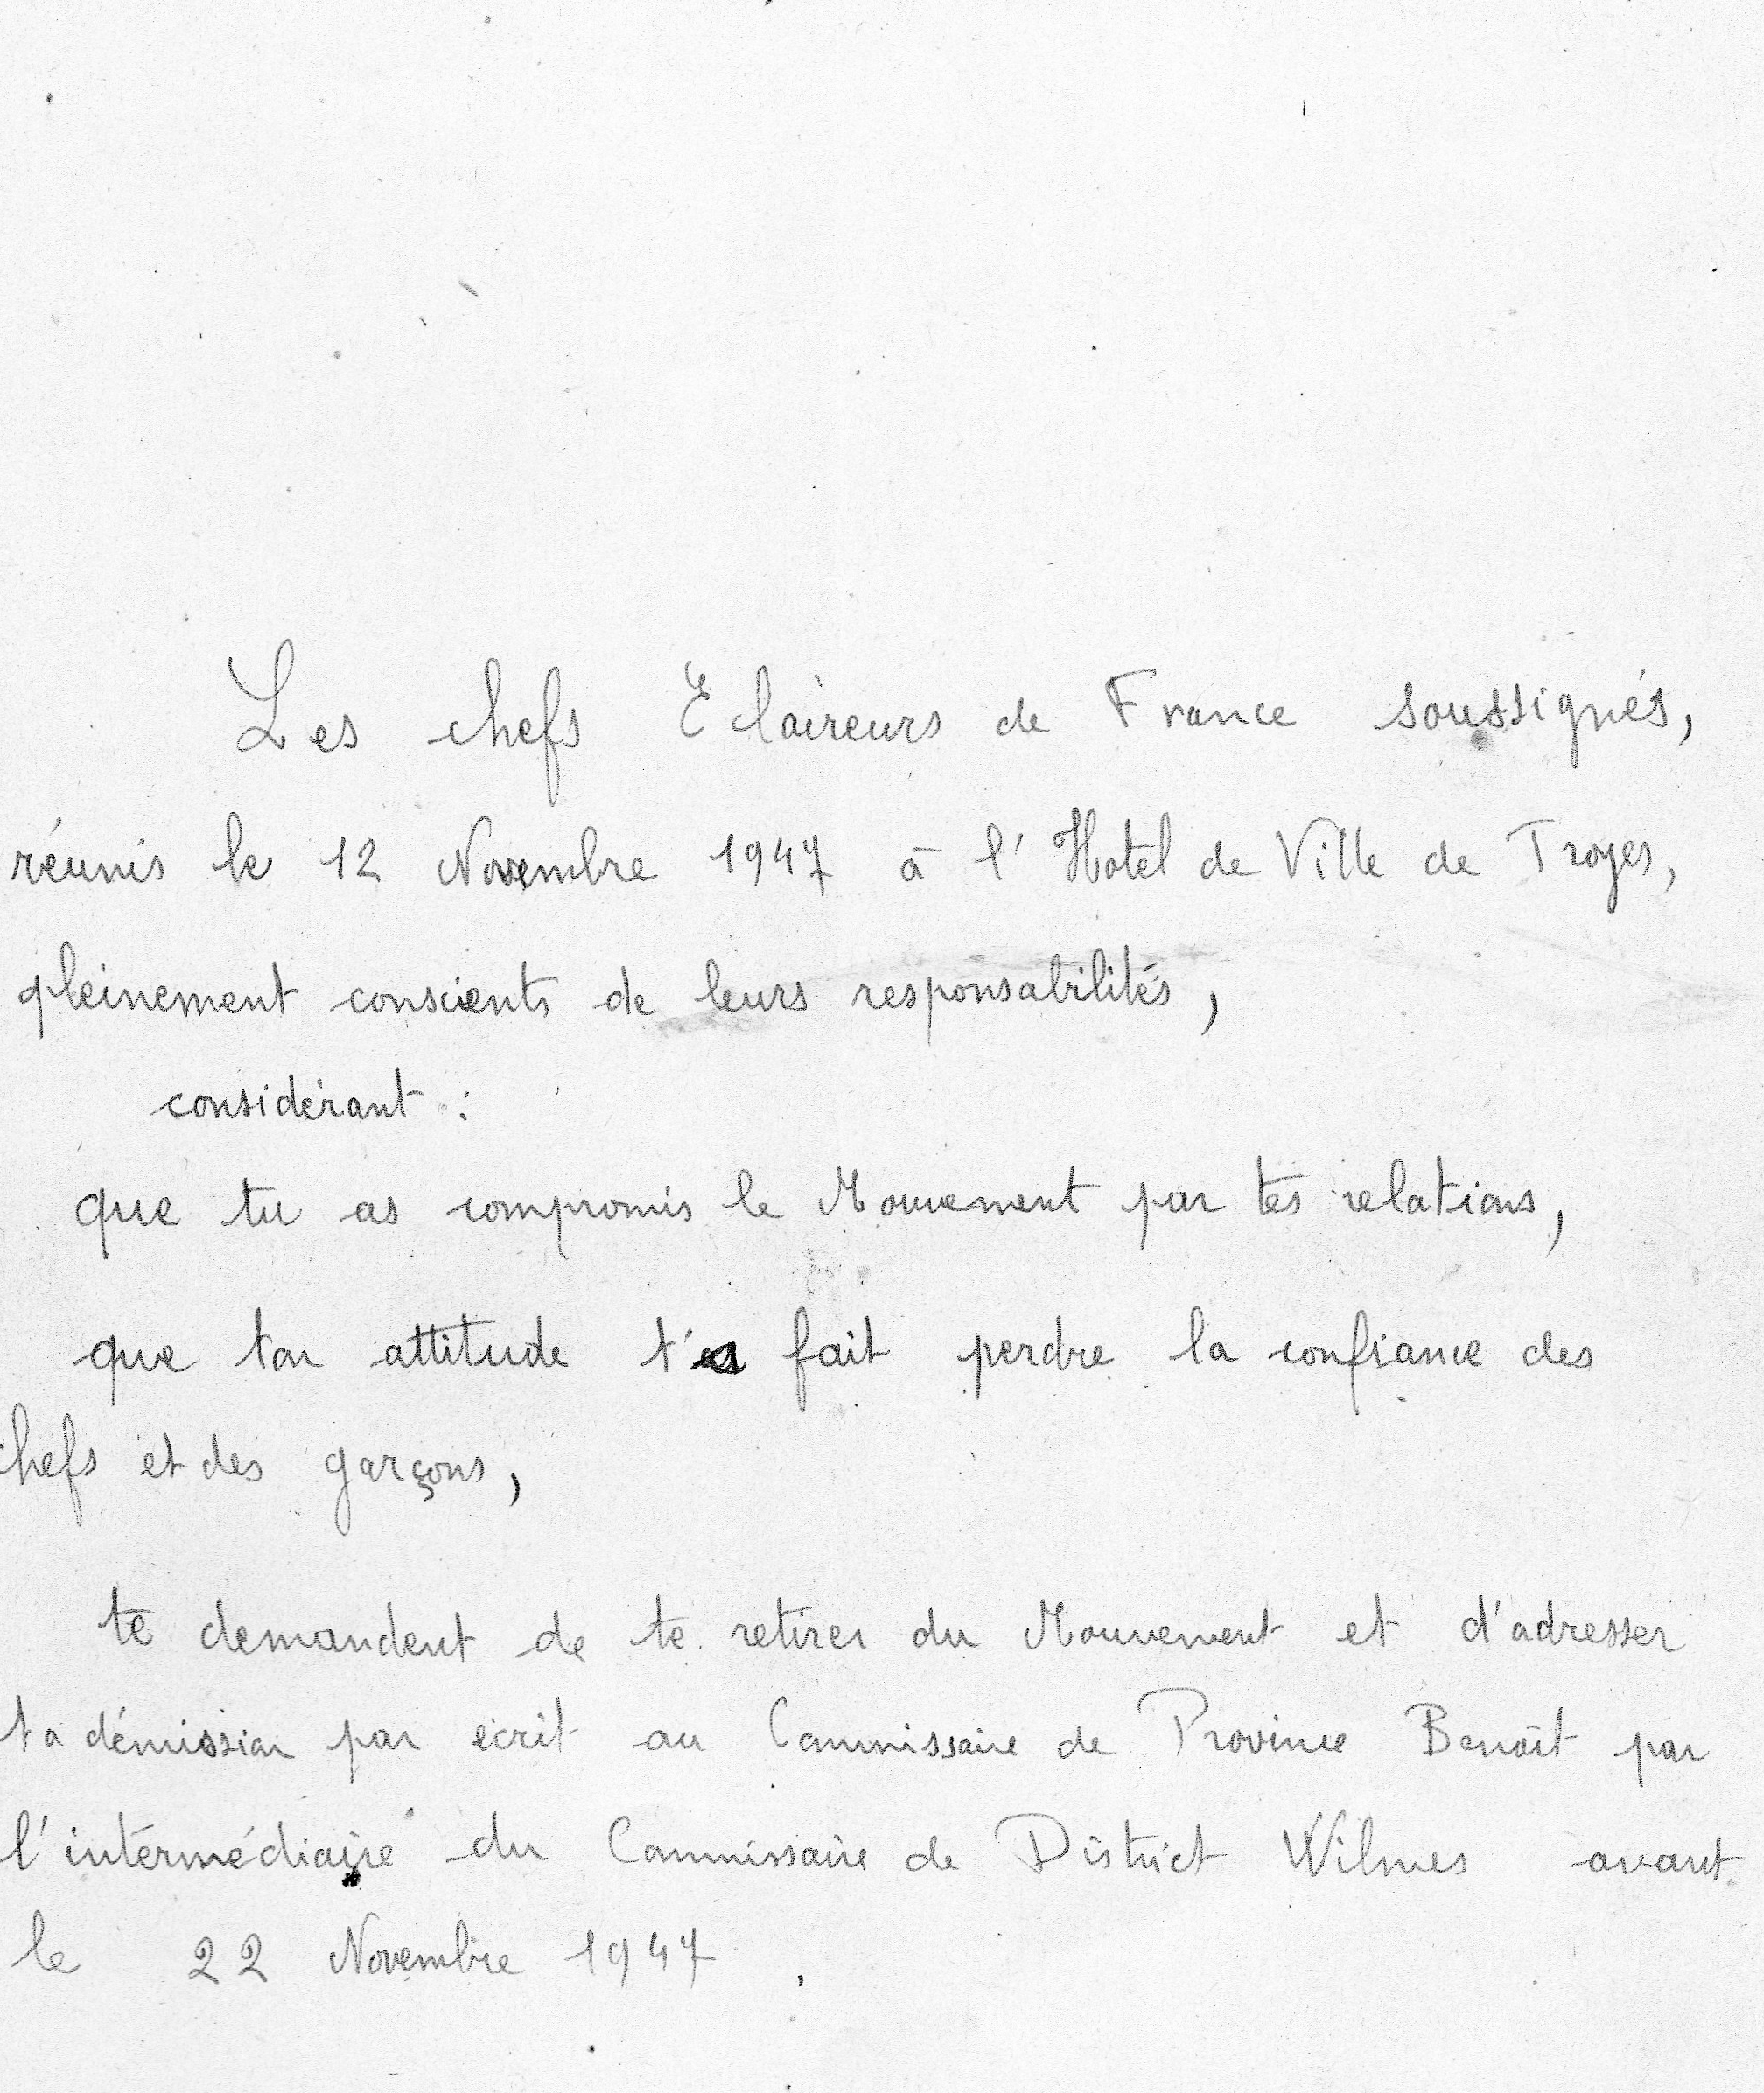 Les chefs Eclaireurs de France soussignés,
réunis le 12 Novembre 1947 à l'Hotel de Ville de Troyes,
pleinement conscients de leurs responsabilités,
considérant :
que tu as compromis le Mouvement par tes relations,
que ton attitude t'a fait perdre la confiance des
chefs et des garçons,
te demandent de te retirer du Mouvement et d'adresser
ta démission par écrit au Commissaire de Province Benoît par
l'intermédiaire du Commissaire de District Wilmes avant
le 22 Novembre 1947.